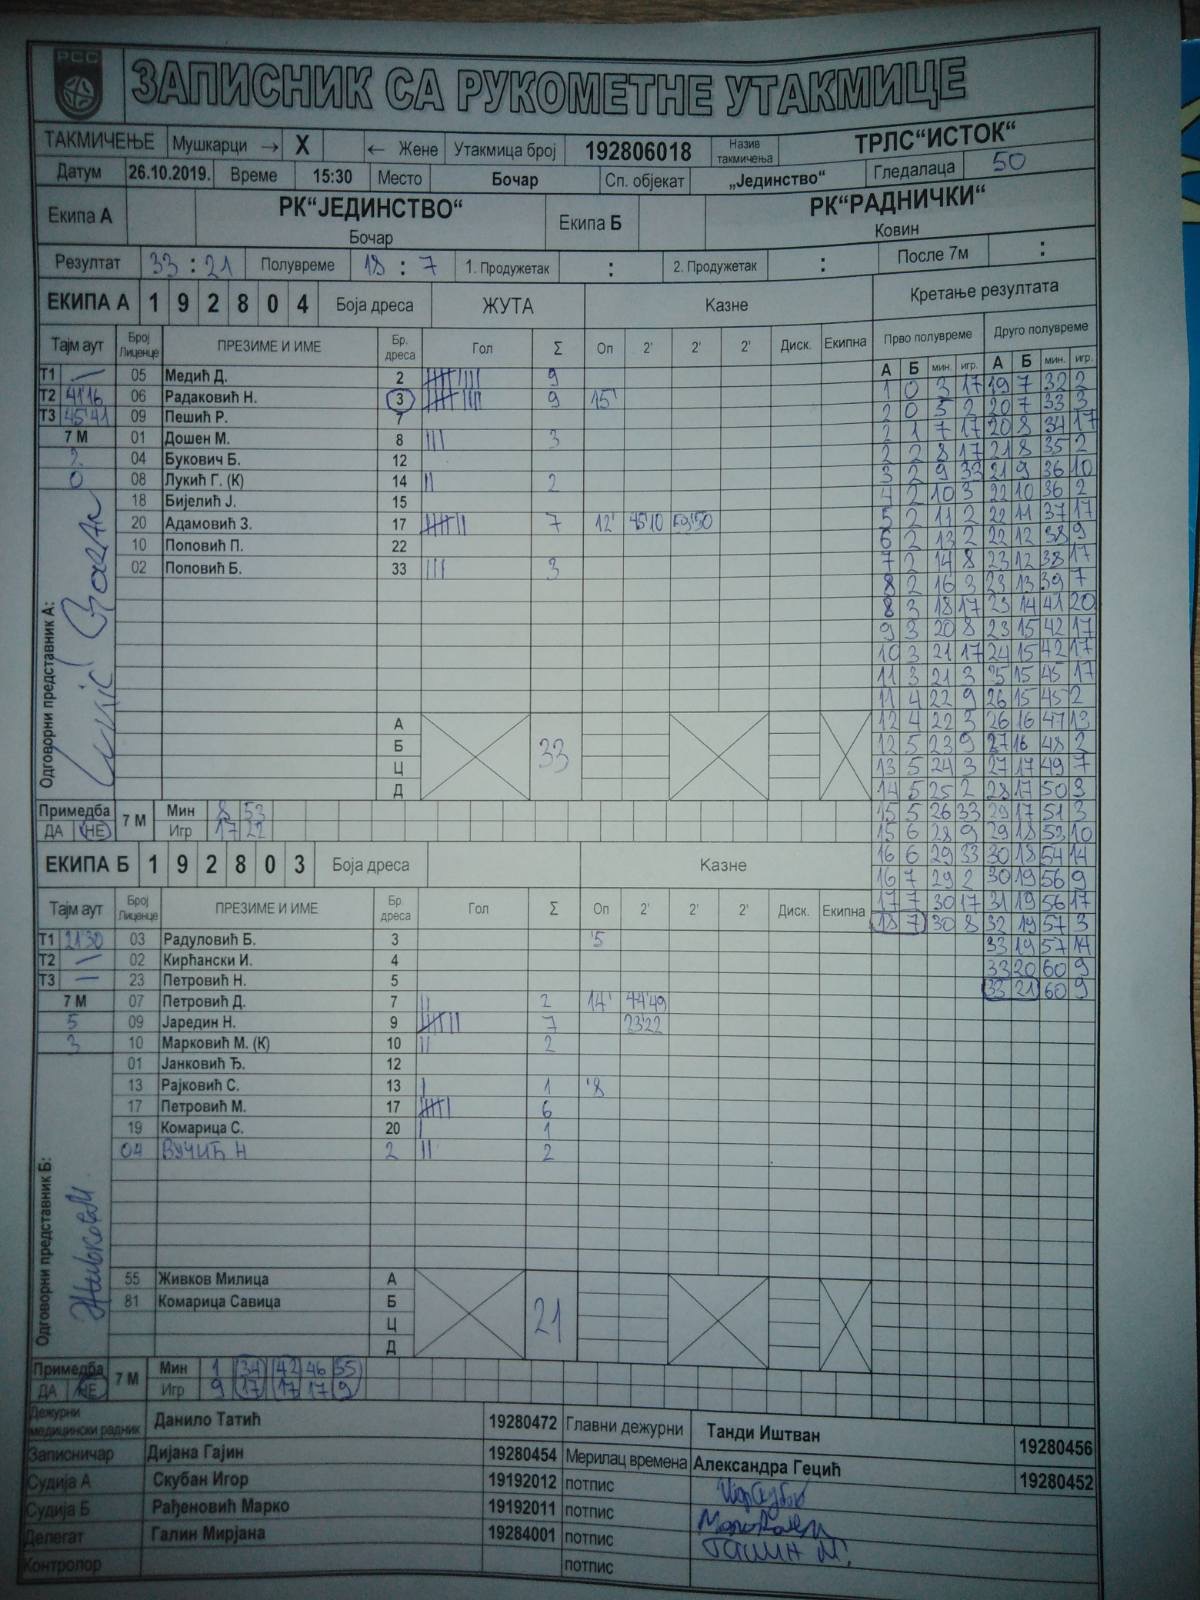 РСС
ЗАПИСНИК СА РУКОМЕТНЕ УТАКМИЦЕ
ТАКМИЧЕЊЕ Мушкарци → X ← Жене Утакмица број 192806018 Назив такмичења ТРЛС“ИСТОК“
Датум 26.10.2019. Време 15:30 Место Бочар Сп. објекат „Јединство“ Гледалаца 50
Екипа А РК“ЈЕДИНСТВО“ Екипа Б РК“РАДНИЧКИ“
Бочар Ковин
Резултат 33 : 21 Полувреме 18 : 7 1. Продужетак : 2. Продужетак : После 7м :
ЕКИПА А 1 9 2 8 0 4 Боја дреса ЖУТА Казне Кретање резултата
Прво полувреме Друго полувреме
Тајм аут Број Лиценце ПРЕЗИМЕ И ИМЕ Бр. дреса Гол Σ Оп 2' 2' 2' Диск. Екипна А Б мин. игр. А Б мин. игр.
Т1 05 Медић Д. 2 9
Т2 41'16 06 Радаковић Н. 3 9 15'
Т3 45'41 09 Пешић Р. 7
7 М 01 Дошен М. 8 3
04 Буковић Б. 12
0 08 Лукић Г. (К) 14 2
18 Бијелић Ј. 15
20 Адамовић З. 17 7 12' 45'10 59'50
10 Поповић П. 22
02 Поповић Б. 33 3
1 0 3 17 19 7 32 2
2 0 5 2 20 7 33 3
2 1 7 17 20 8 34 17
2 2 8 17 21 8 35 2
3 2 9 33 21 9 36 10
4 2 10 3 22 10 36 2
5 2 11 2 22 11 37 17
6 2 13 2 22 12 38 9
7 2 14 8 23 12 38 17
8 2 16 3 23 13 39 7
8 3 18 17 23 14 41 20
9 3 20 8 23 15 42 17
10 3 21 17 24 15 42 17
11 3 21 3 25 15 45 17
11 4 22 9 26 15 45 2
12 4 22 3 26 16 47 13
12 5 23 9 27 16 48 2
13 5 24 3 27 17 49 7
14 5 25 2 28 17 50 3
15 5 26 33 29 17 51 3
15 6 28 9 29 18 53 10
16 6 29 33 30 18 54 14
16 7 29 2 30 19 56 9
17 7 30 17 31 19 56 17
18 7 30 8 32 19 57 3
33 19 57 14
33 20 60 9
33 21 60 9
Одговорни представник А:
А
Б
Ц
Д
33
Примедба 7 М Мин 8 53
ДА НЕ Игр 17 22
ЕКИПА Б 1 9 2 8 0 3 Боја дреса Казне
Тајм аут Број Лиценце ПРЕЗИМЕ И ИМЕ Бр. дреса Гол Σ Оп 2' 2' 2' Диск. Екипна
Т1 21'30 03 Радуловић Б. 3 '5
Т2 02 Кирћански И. 4
Т3 23 Петровић Н. 5
7 М 07 Петровић Д. 7 2 14' 44'49
5 09 Јаредин Н. 9 7 23'22
3 10 Марковић М. (К) 10 2
01 Јанковић Ђ. 12
13 Рајковић С. 13 1 '8
17 Петровић М. 17 6
19 Комарица С. 20 1
04 ВУЧИЋ Н 2 2
Одговорни представник Б:
55 Живков Милица А
81 Комарица Савица Б
Ц
Д
21
Примедба 7 М Мин 1 34 42 46 55
ДА НЕ Игр 9 17 17 17 9
Дежурни медицински радник Данило Татић 19280472 Главни дежурни Танди Иштван 19280456
Записничар Дијана Гајин 19280454 Мерилац времена Александра Гецић 19280452
Судија А Скубан Игор 19192012 потпис
Судија Б Рађеновић Марко 19192011 потпис
Делегат Галин Мирјана 19284001 потпис Галин М.
Контролор потпис